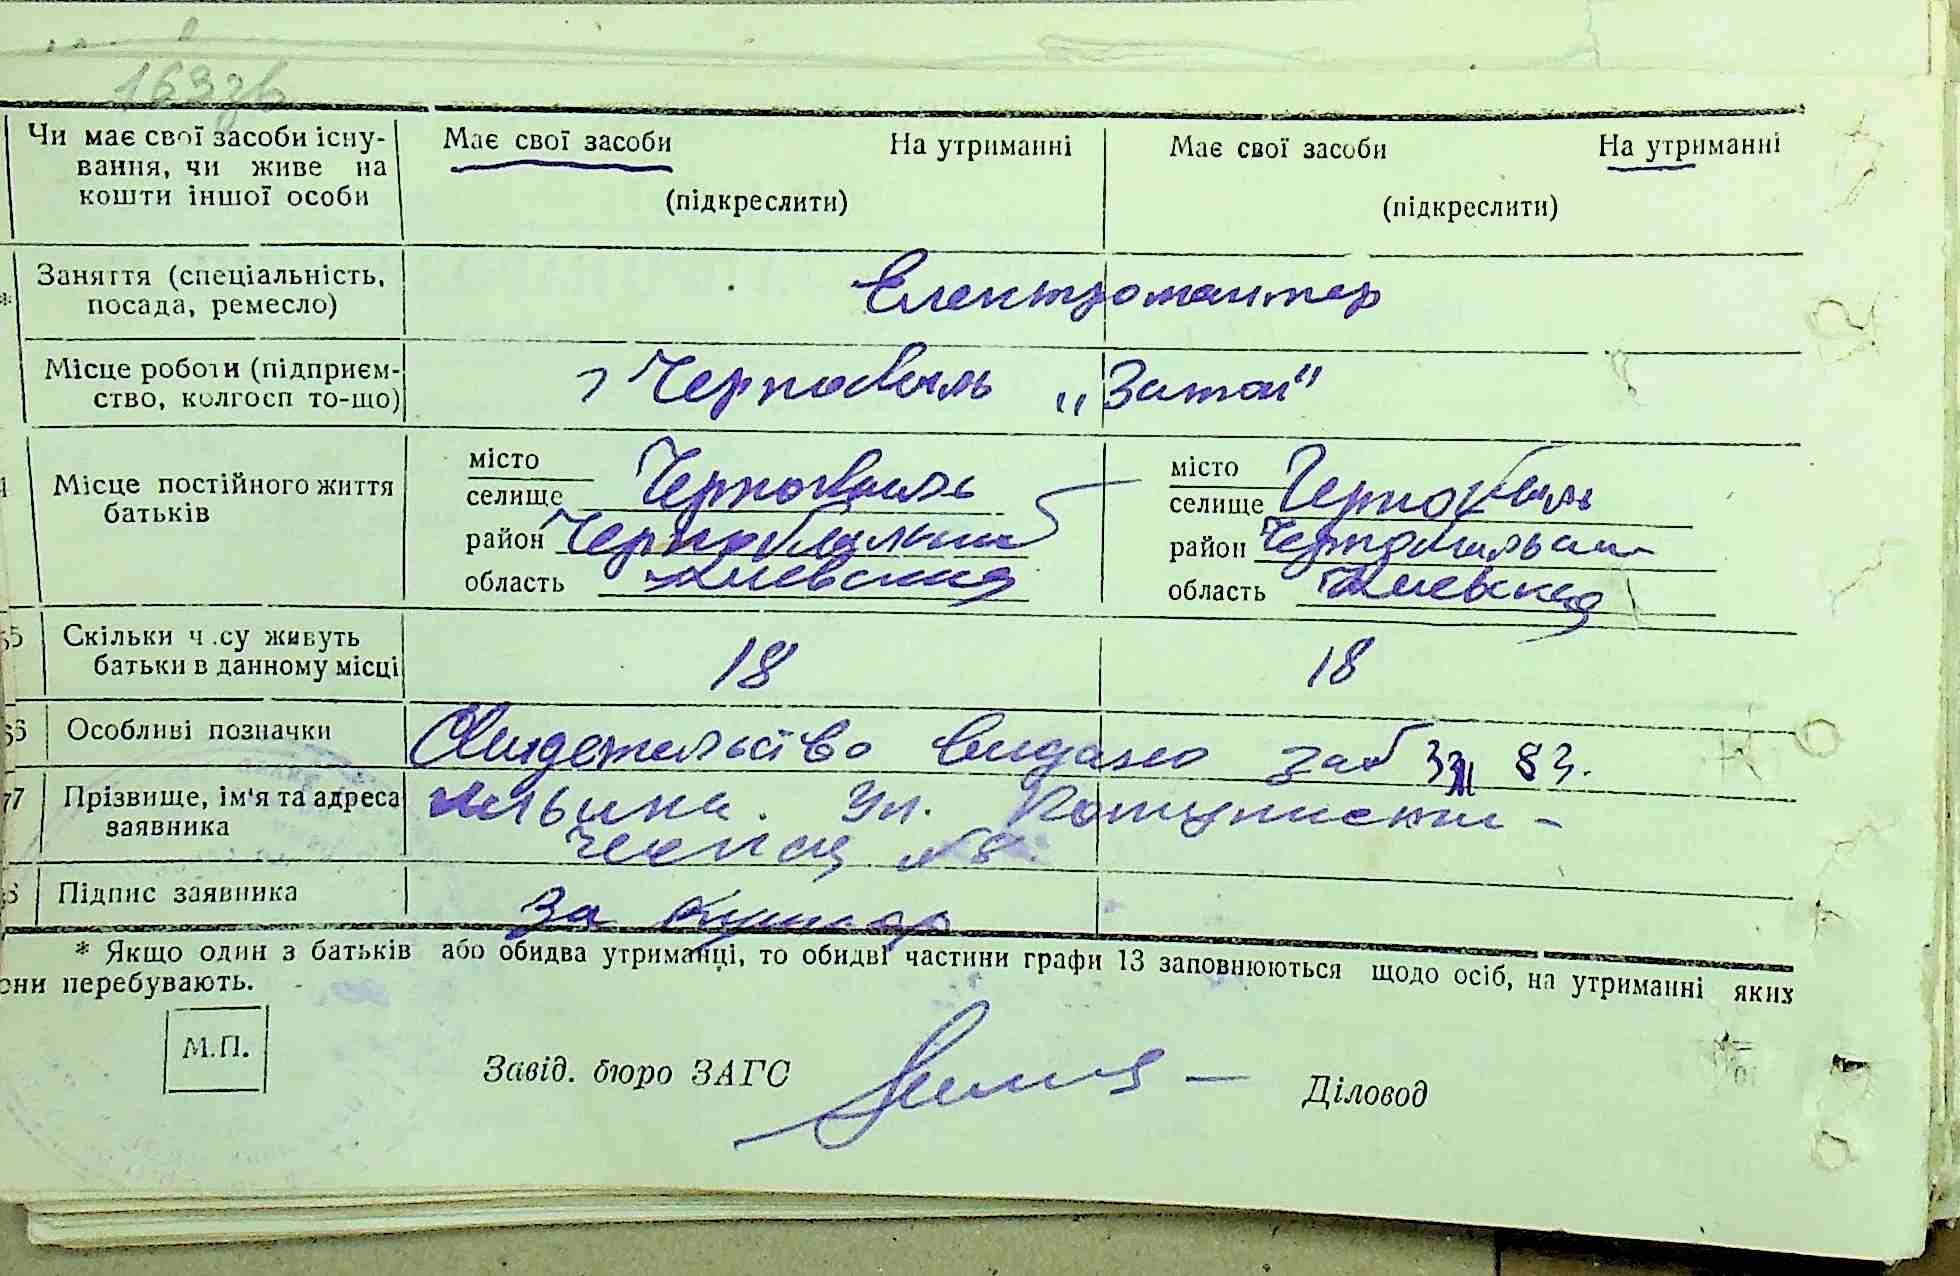 163зв
Чи має свої засоби існу-
вання, чи живе на
кошти іншої особи
Має свої засоби На утриманні
(підкреслити)
Має свої засоби На утриманні
(підкреслити)
Заняття (спеціальність,
посада, ремесло)
Електромонтер
Місце роботи (підприєм-
ство, колгосп то-що)
г Чернобыль „Затон"
Місце постійного життя
батьків
місто
селище Чернобыль
район Чернобыльский
область Киевская
місто
селище Чернобыль
район Чернобыльский
область Киевская
Скільки ч.су живуть
батьки в данному місці
18 18
Особливі позначки
Свидетельство видано 83.
77 Прізвище, ім'я та адреса
заявника
Ильина. Ул. Комунисти-
ческая №
Підпис заявника
За
* Якщо один з батьків або обидва утриманці, то обидві частини графи 13 заповнюються щодо осіб, на утриманні яких
они перебувають.
М.П.
Завід. бюро ЗАГС
Діловод